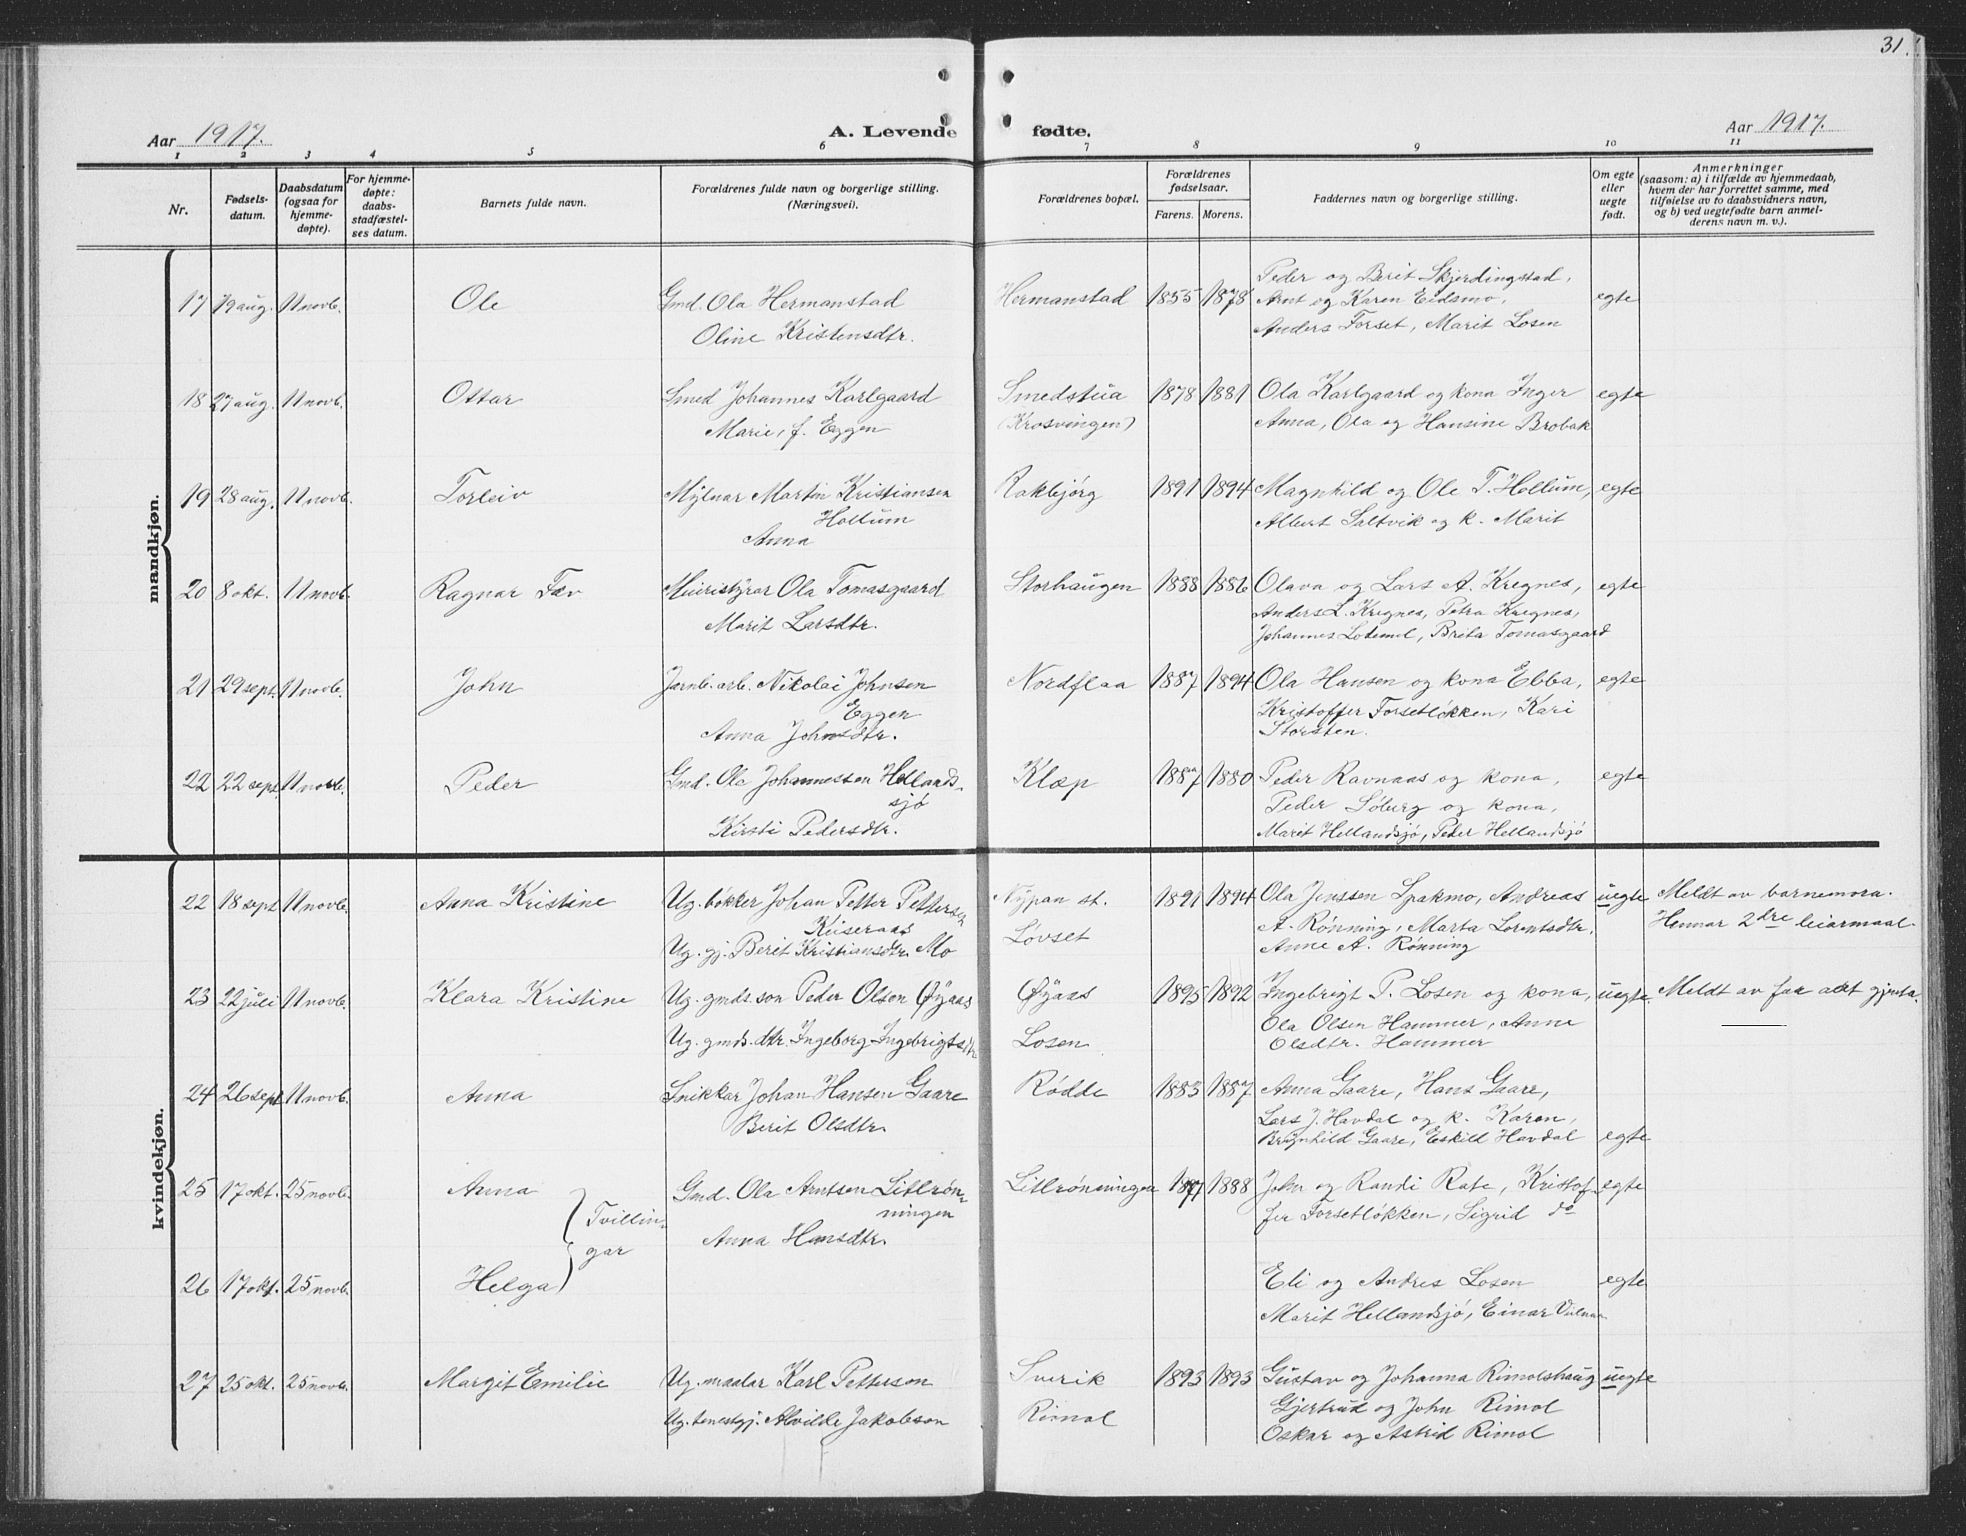 31.
Aar 1917. A. Levende fødte. Aar 1917.
1 2 3 4 5 6 7 8 9 10 11
Nr.
Fødsels-
datum.
Daabsdatum
(ogsaa for
hjemme-
døpte).
For hjemme-
døpte:
daabs-
stadfæstel-
ses datum.
Barnets fulde navn.
Forældrenes fulde navn og borgerlige stilling.
(Næringsvei).
Forældrenes bopæl.
Forældrenes
fødselsaar.
Farens. Morens.
Faddernes navn og borgerlige stilling.
Om egte
eller
uegte
født.
Anmerkninger
(saasom: a) i tilfælde av hjemmedaab,
hvem der har forrettet samme, med
tilføielse av to daabsvidners navn,
og b) ved uegtefødte barn anmel-
derens navn m. v.).
mandkjøn.
17 19 aug. 11 novb. Ole Gmd. Ola Hermanstad Hermanstad 1855 1878 Peder og Berit Skjerdingstad, egte
Oline Kristensdtr. Arnt og Karen Eidsmo,
Anders Forset, Marit Losen
18 27 aug. 11 novb. Ottar Smed Johannes Karlgaard Smedstua 1878 1881 Ola Karlgaard og kona Inger egte
Marie, f. Eggen (Krosvingen) Anna, Ola og Hansine Brobak
19 28 aug. 11 novb. Torleiv Mylnar Martin Kristiansen Rakbjørg 1891 1894 Magnhild og Ole T. Hollum, egte
Hollum Albert Saltvik og k. Marit
Anna
20 8 okt. 11 novb. Ragnar Fæv Meieristyrar Ola Tomasgaard Storhaugen 1888 1886 Olava og Lars A. Kregnes, egte
Marit Larsdtr. Anders L. Kregnes, Petra Kregnes,
Johannes Lodemel, Brita Tomasgaard
21 29 sept. 11 novb. John Jarnb. arb. Nikolai Johnsen Nordflaa 1887 1894 Ola Hansen og kona Ebba, egte
Eggen Kristoffer Forsetløkken, Kari
Anna Johnsdtr. Storsten.
22 22 sept. 11 novb. Peder Gmd. Ole Johannessen Hellands- Klæp 1887 1880 Peder Ravnaas og kona, egte
sjø Peder Søberg og kona,
Kirsti Pedersdtr. Marit Hellandsjø, Peder Hellandsjø
kvindekjøn.
22 18 sept 11 novb. Anna Kristine Ug. bøkker Johan Petter Pettersen Nypan st. 1891 1894 Ola Jenssen Spakmo, Andreas uegte Meldt av barnemora.
Keiseraas Løvset A. Rønning, Marta Lorentsdtr. Hennar 2dre leiarmaal.
Ug. gj. Berit Kristiansdtr. Mo Anne A. Rønning
23 22 juli 11 novb. Klara Kristine Ug. gmds. son Peder Olsen Øyaas Øyaas 1895 1892 Ingebrigt P. Losen og kona, uegte. Meldt av far aat gjenta.
Ug. gmds. dtr. Ingeborg Ingebrigtsdtr Losen Ola Olsen Hammer, Anne
Olsdtr. Hammer
24 26 sept 11 novb. Anna Snikkar Johan Hansen Gaare Rødde 1883 1887 Anna Gaare, Hans Gaare,
Berit Olsdtr. Lars J. Havdal og k. Karen,
Brynhild Gaare, Eskild Havdal egte
25 17 okt. 25 novb. Anna Gmd. Ola Arntsen Litlrøn- Litlrønningen 1877 1888 John og Randi Rate, Kristof- egte
Tvillin- ningen fer Forsetløkken, Sigrid do
gar Anna Hansdtr.
26 17 okt. 25 novb. Helga Eli og Andres Losen egte
Marit Hellandsjø, Einar
27 25 okt. 25 novb. Margit Emilie Ug. maalar Karl Petterson Sverik 1893 1893 Gustav og Johanna Rimolshaug uegte
Ug. tenestgj. Alvilde Jakobson Rimol Gjertrud og John Rimol
Oskar og Astrid Rimol